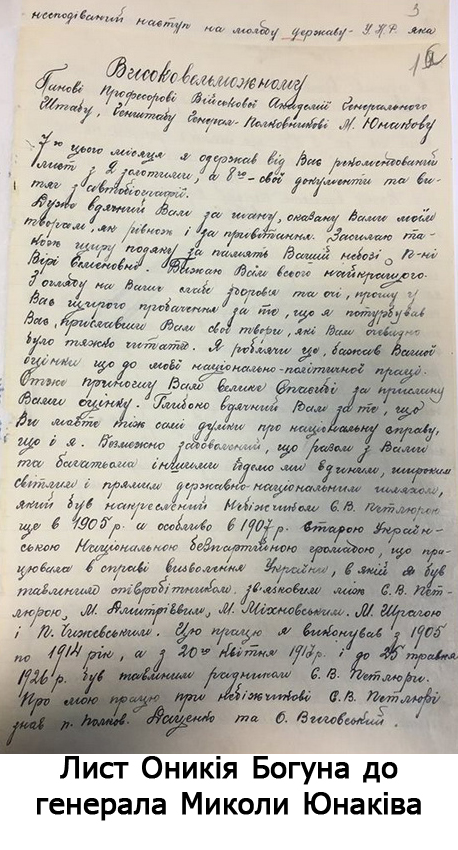 3
несподіваний наступ на молоду державу - У.Н.Р. яка
Високовельможному
Панові Професорові Військової Академії Генерального
Штабу, Генштабу Генерал-Полковникові М. Юнакову
7го цього місяця я одержав від Вас рекомендований
лист з 2 золотими, а 8го - свої документи та ви-
тяг з автобіографії.
Дуже вдячний Вам за шану, оказану Вами моїм
творам, як рівнож і за привітання. Засилаю та-
кож щиру подяку за память Вашій небозі, п-ні
Вірі Семеновні. Бажаю Вам всього найкращого.
З огляду на Ваше слабе здоровя та очі, прошу у
Вас щирого пробачення за те, що я потурбував
Вас, приславши Вам свої твори, які Вам очевидно
було тяжко читати. Я роблячи це, бажав Вашої
оцінки що до моєї національно-політичної праці.
Отже приношу Вам велике Спасибі за прислану
Вами оцінку. Глибоко вдячний Вам за те, що
Ви маєте тіж самі думки про національну справу,
що і я. Безмежно задоволений, що разом з Вами
та багатьома іншими йдемо ми єдиним, широким
світлим і прямим державно-національним шляхом,
який був накреслений Небіжчиком С. В. Петлюрою
ще в 1905 р. а особливо в 1907 р. Старою Україн-
ською Національною безпартійною громадою, що пра-
цювала в справі визволення України, в якій я був
таємним співробітником. зв'язковим між С. В. Пет-
люрою, М. Дмитрієвим, М. Міхновським. М. Шрагою
і П. Чижевським. Цю працю я виконував з 1905
по 1914 рік, а з 20го квітня 1917 р. і до 25 травня
1926 р. був таємним радником С. В. Петлюри.
Про мою працю при Небіжчикові С. В. Петлюрі
знав п. Полков. Даценко та О. Виговський.
Лист Оникія Богуна до
генерала Миколи Юнаківа